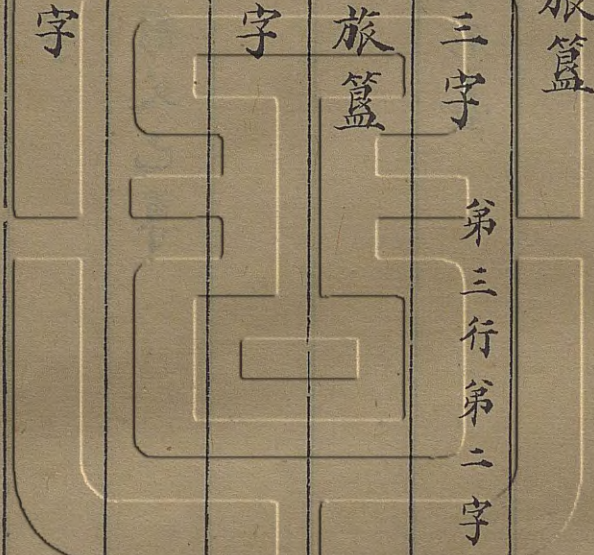 旅簋
三字　第三行第二字
旅簋
字
字